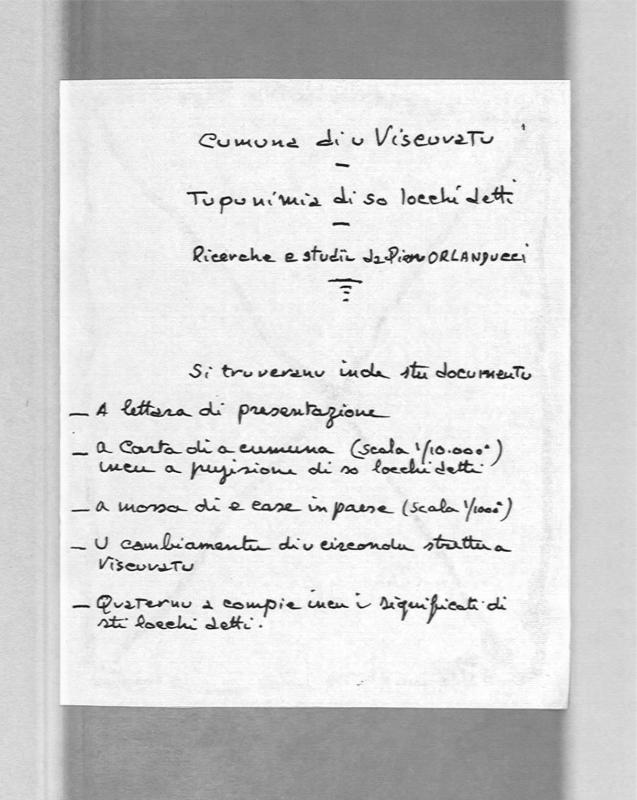 Cumuna di u Viscuvatu
Tupunimia di so locchi detti
Ricerche e studii da Pieru ORLANDUCCI
Si truveranu inde stu documentu
— A lettara di presentazione
— a Carta di a cumuna (scala 1/10.000°)
incu a pusizione di so locchi detti
— a mossa di e case in paese (scala 1/1000°)
— U cambiamentu di u circondu strettu a
Viscuvatu
— Quaternu a compie incu i significati di
sti locchi detti.